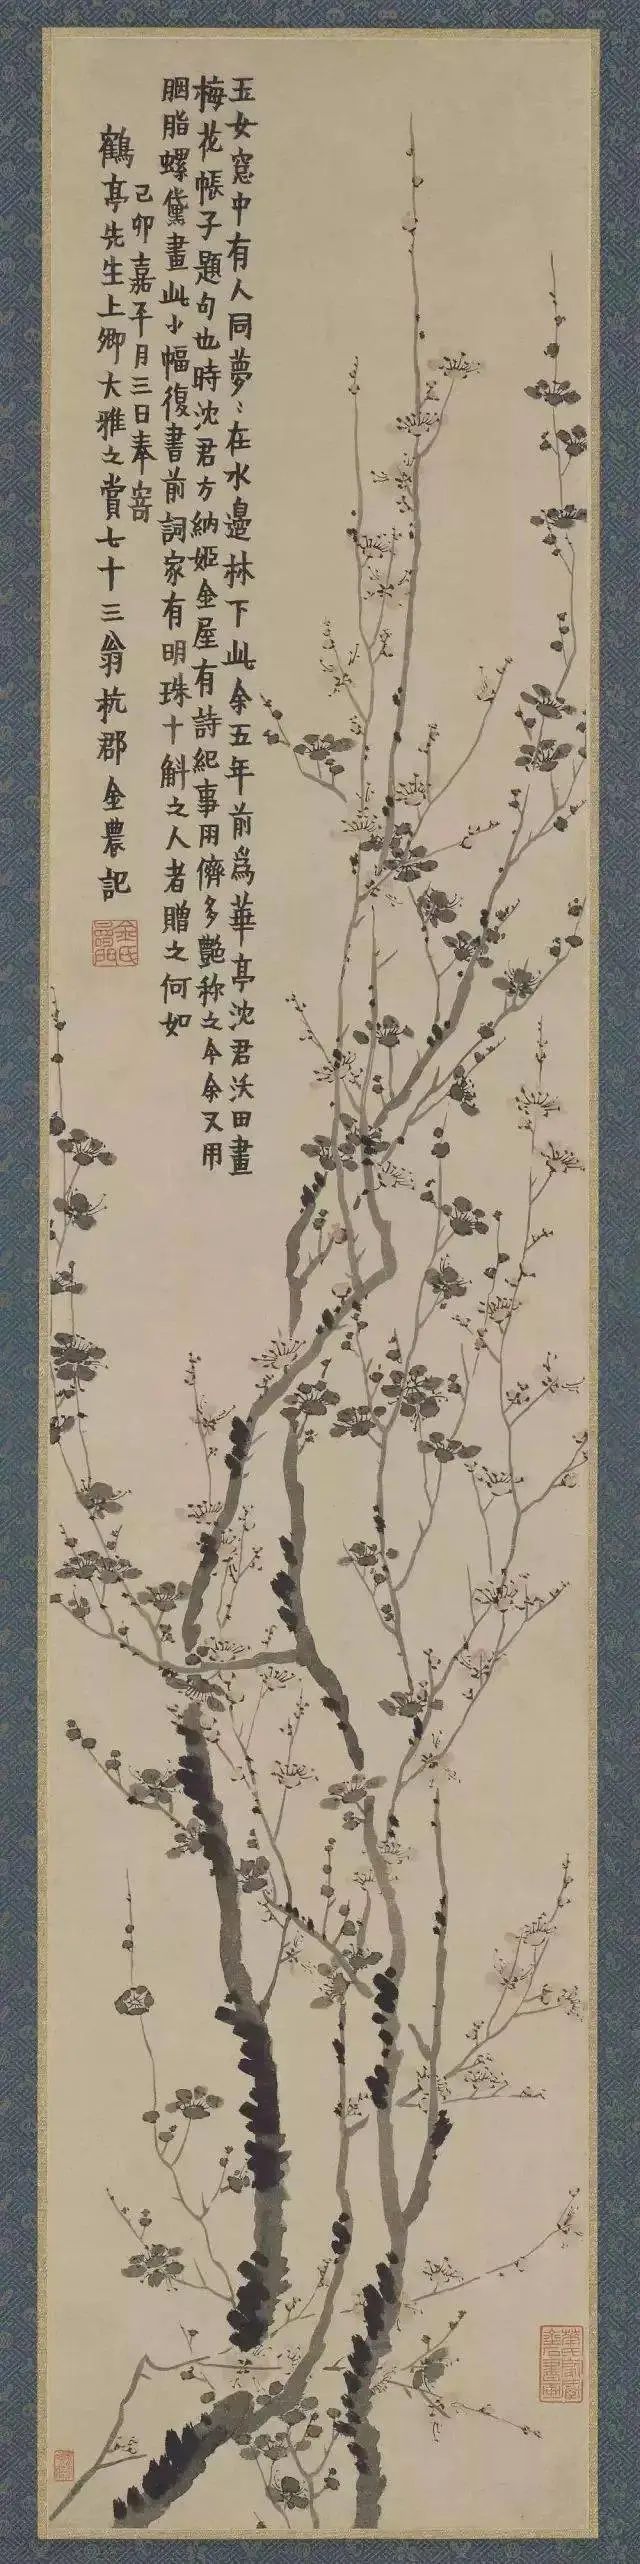 玉女窓中有人同夢〻在水邊林下此余五年前爲華亭沈君沃田畫
梅花帳子題句也時沈君方納姬金屋有詩紀事朋儕多艷称之今余又用
胭脂螺黛畫此小幅復書前詞家有明珠十斛之人者贈之何如
己卯嘉平月三日奉寄
鶴亭先生上卿大雅之賞七十三翁杭郡金農記
金氏壽門